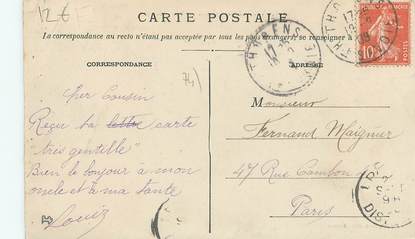 12€
CARTE POSTALE
La correspondance au recto n'est pas acceptée par tous les pays étrangers, se renseigner à
CORRESPONDANCE
ADRESSE
THORENS
10
74)
Cher Cousin
Reçu ta lettre carte
"très gentille"
Bien le bonjour à mon
oncle et à ma tante
Louis
Monsieur
Fernand Maignier
47 Rue Cambon 47
Paris